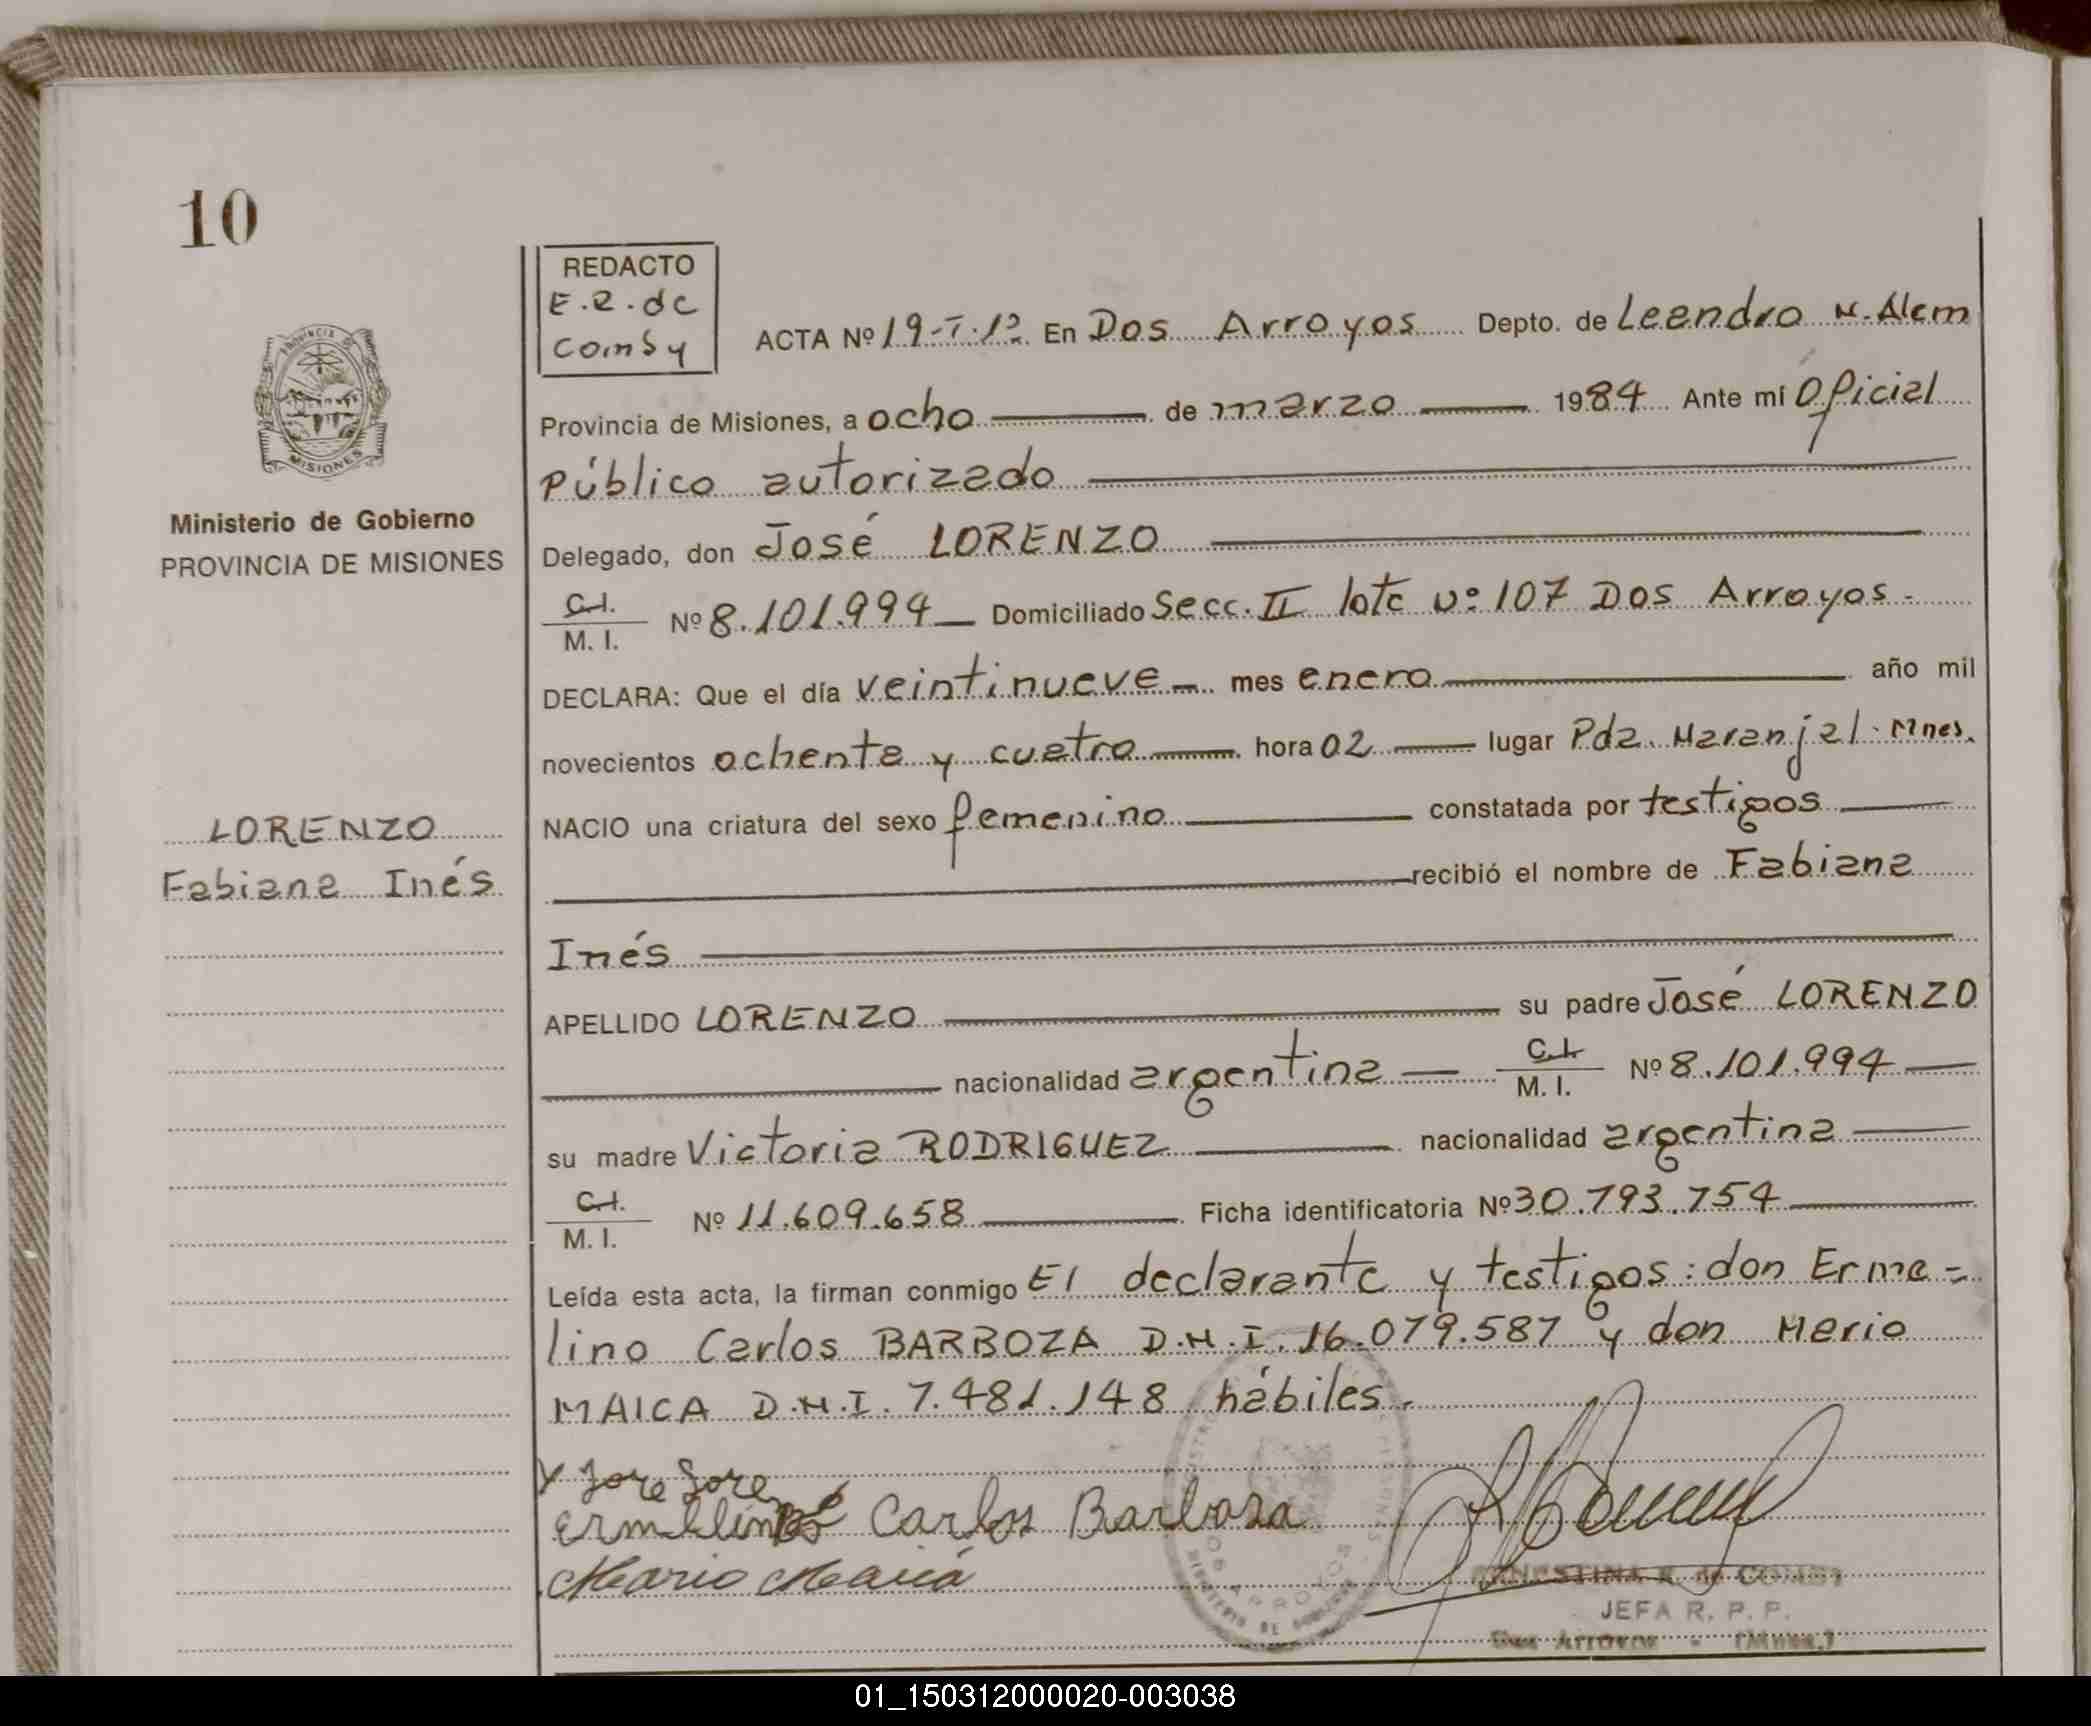 10
REDACTO
E.R. de
Comsy
ACTA Nº 19-T.1º En Dos Arroyos Depto. de Leandro N. Alem
Provincia de Misiones, a ocho de marzo 1984 Ante mí Oficial
Público autorizado
Delegado, don José LORENZO
C.I.
M. I. Nº 8.101.994 Domiciliado Secc. II lote nº 107 Dos Arroyos.
DECLARA: Que el día veintinueve mes enero año mil
novecientos ochenta y cuatro hora 02 lugar Pda. Naranjal. Mnes.
NACIO una criatura del sexo femenino constatada por testigos
recibió el nombre de Fabiana
Inés
APELLIDO LORENZO su padre José LORENZO
nacionalidad argentina C.I.
M. I. Nº 8.101.994
su madre Victoria RODRIGUEZ nacionalidad argentina
C.I.
M. I. Nº 11.609.658 Ficha identificatoria Nº 30.793.754
Leída esta acta, la firman conmigo El declarante y testigos: don Erme=
lino Carlos BARBOZA D.N.I. 16.079.587 y don Mario
MAICA D.N.I. 7.481.148 hábiles.
Carlos Barboza
Mario Maica
JEFA R. P. P.
DOS ARROYOS
MISIONES
Ministerio de Gobierno
PROVINCIA DE MISIONES
LORENZO
Fabiana Inés
01_150312000020-003038